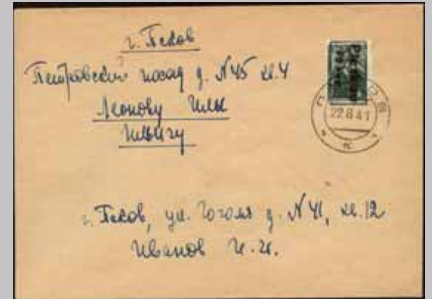 г. Псков
Петровский посад д. №45 кв. 4
Леонову Илье
Ильичу
22 8 41
г. Псков, ул. Гоголя д. №41, кв. 12
Иванов И. И.